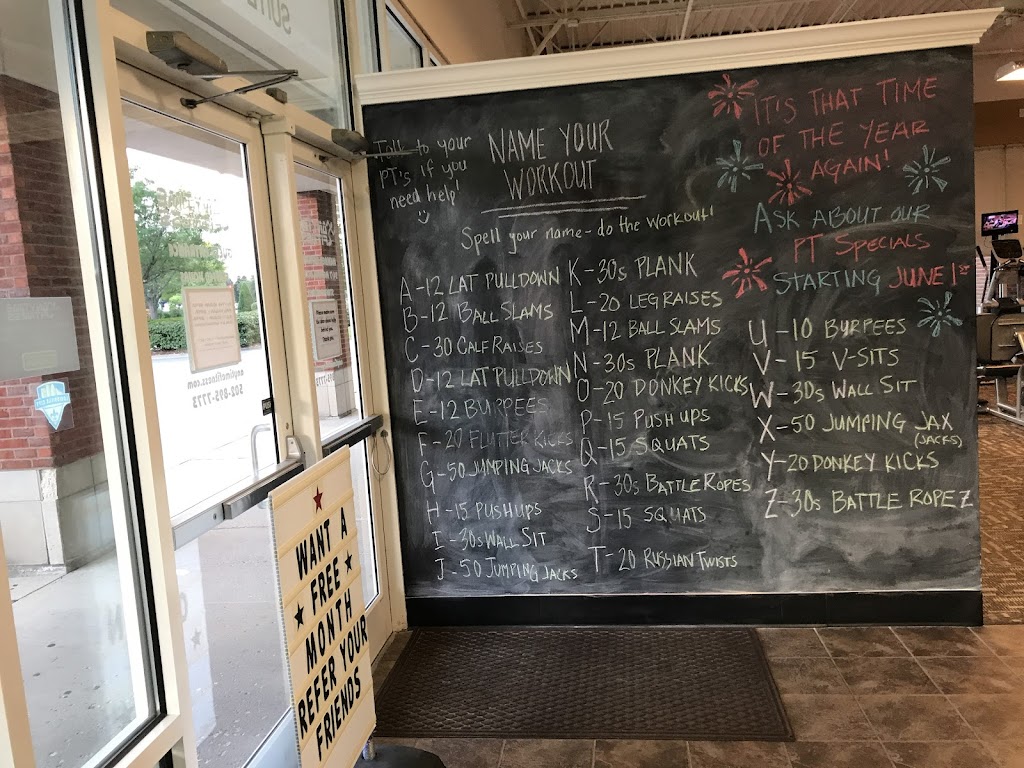 Talk to your
PT's if you
need help!
NAME YOUR
WORKOUT
Spell your name - do the workout!
A - 12 LAT PULLDOWN
B - 12 BALL SLAMS
C - 30 CALF RAISES
D - 12 LAT PULLDOWN
E - 12 BURPEES
F - 20 FLUTTER KICKS
G - 50 JUMPING JACKS
H - 15 PUSHUPS
I - 30s WALL SIT
J - 50 JUMPING JACKS
K - 30s PLANK
L - 20 LEG RAISES
M - 12 BALL SLAMS
N - 30s PLANK
O - 20 DONKEY KICKS
P - 15 PUSH UPS
Q - 15 SQUATS
R - 30s BATTLE ROPES
S - 15 SQUATS
T - 20 RUSSIAN TWISTS
IT'S THAT TIME
OF THE YEAR
AGAIN!
ASK ABOUT OUR
PT SPECIALS
STARTING JUNE 1st
U - 10 BURPEES
V - 15 V-SITS
W - 30s WALL SIT
X - 50 JUMPING JAX
(JACKS)
Y - 20 DONKEY KICKS
Z - 30s BATTLE ROPEZ
WANT A
FREE
MONTH
REFER YOUR
FRIENDS
anytimefitness.com
502-895-7773